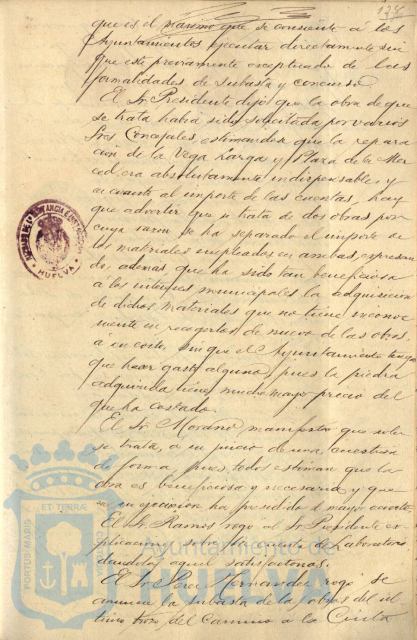 178
que es el maximo que se consiente á los
Ayuntamientos ejecutar directamente sin
que esté previamente exceptuado de las
formalidades de subasta y concurso.
El Sr. Presidente dijo: que la obra de que
se trata habia sido solicitada por varios
Sres Concejales, estimandose que la repara
cion de la Vega Larga y Plaza de la Mer
ced era absolutamente indispensable, y
en cuanto al importe de las cuentas, hay
que advertir que se trata de dos obras por
cuya razon se ha separado el importe de
los materiales empleados en ambas, expresan
do, ademas, que ha sido tan beneficiosa
a los intereses municipales la adquisicion
de dichos materiales que no tiene inconve
niente en recogerlos de nuevo de las obras,
á su costa, sin que el Ayuntamiento tenga
que hacer gasto alguno, pues la piedra
adquirida tiene mucho mayor precio del
que ha costado.
El Sr. Moreno manifestó que solo
se trata, a su juicio de una cuestion
de forma pues todos estiman que la
obra es beneficiosa y necesaria y que
su ejecucion ha presidido el mayor acierto.
El Sr. Ramos rogó al Sr. Presidente ex
plicaciones sobre la cuenta del Laboratorio
dandolas aquel satisfactorias.
El Sr. Perez Hernandez rogó se
anuncie la subasta de las obras del ul
timo trozo del Camino a la Cinta
HUELVA
PORTUS MARIS
ET TERRAE
Ayuntamiento de
HUELVA